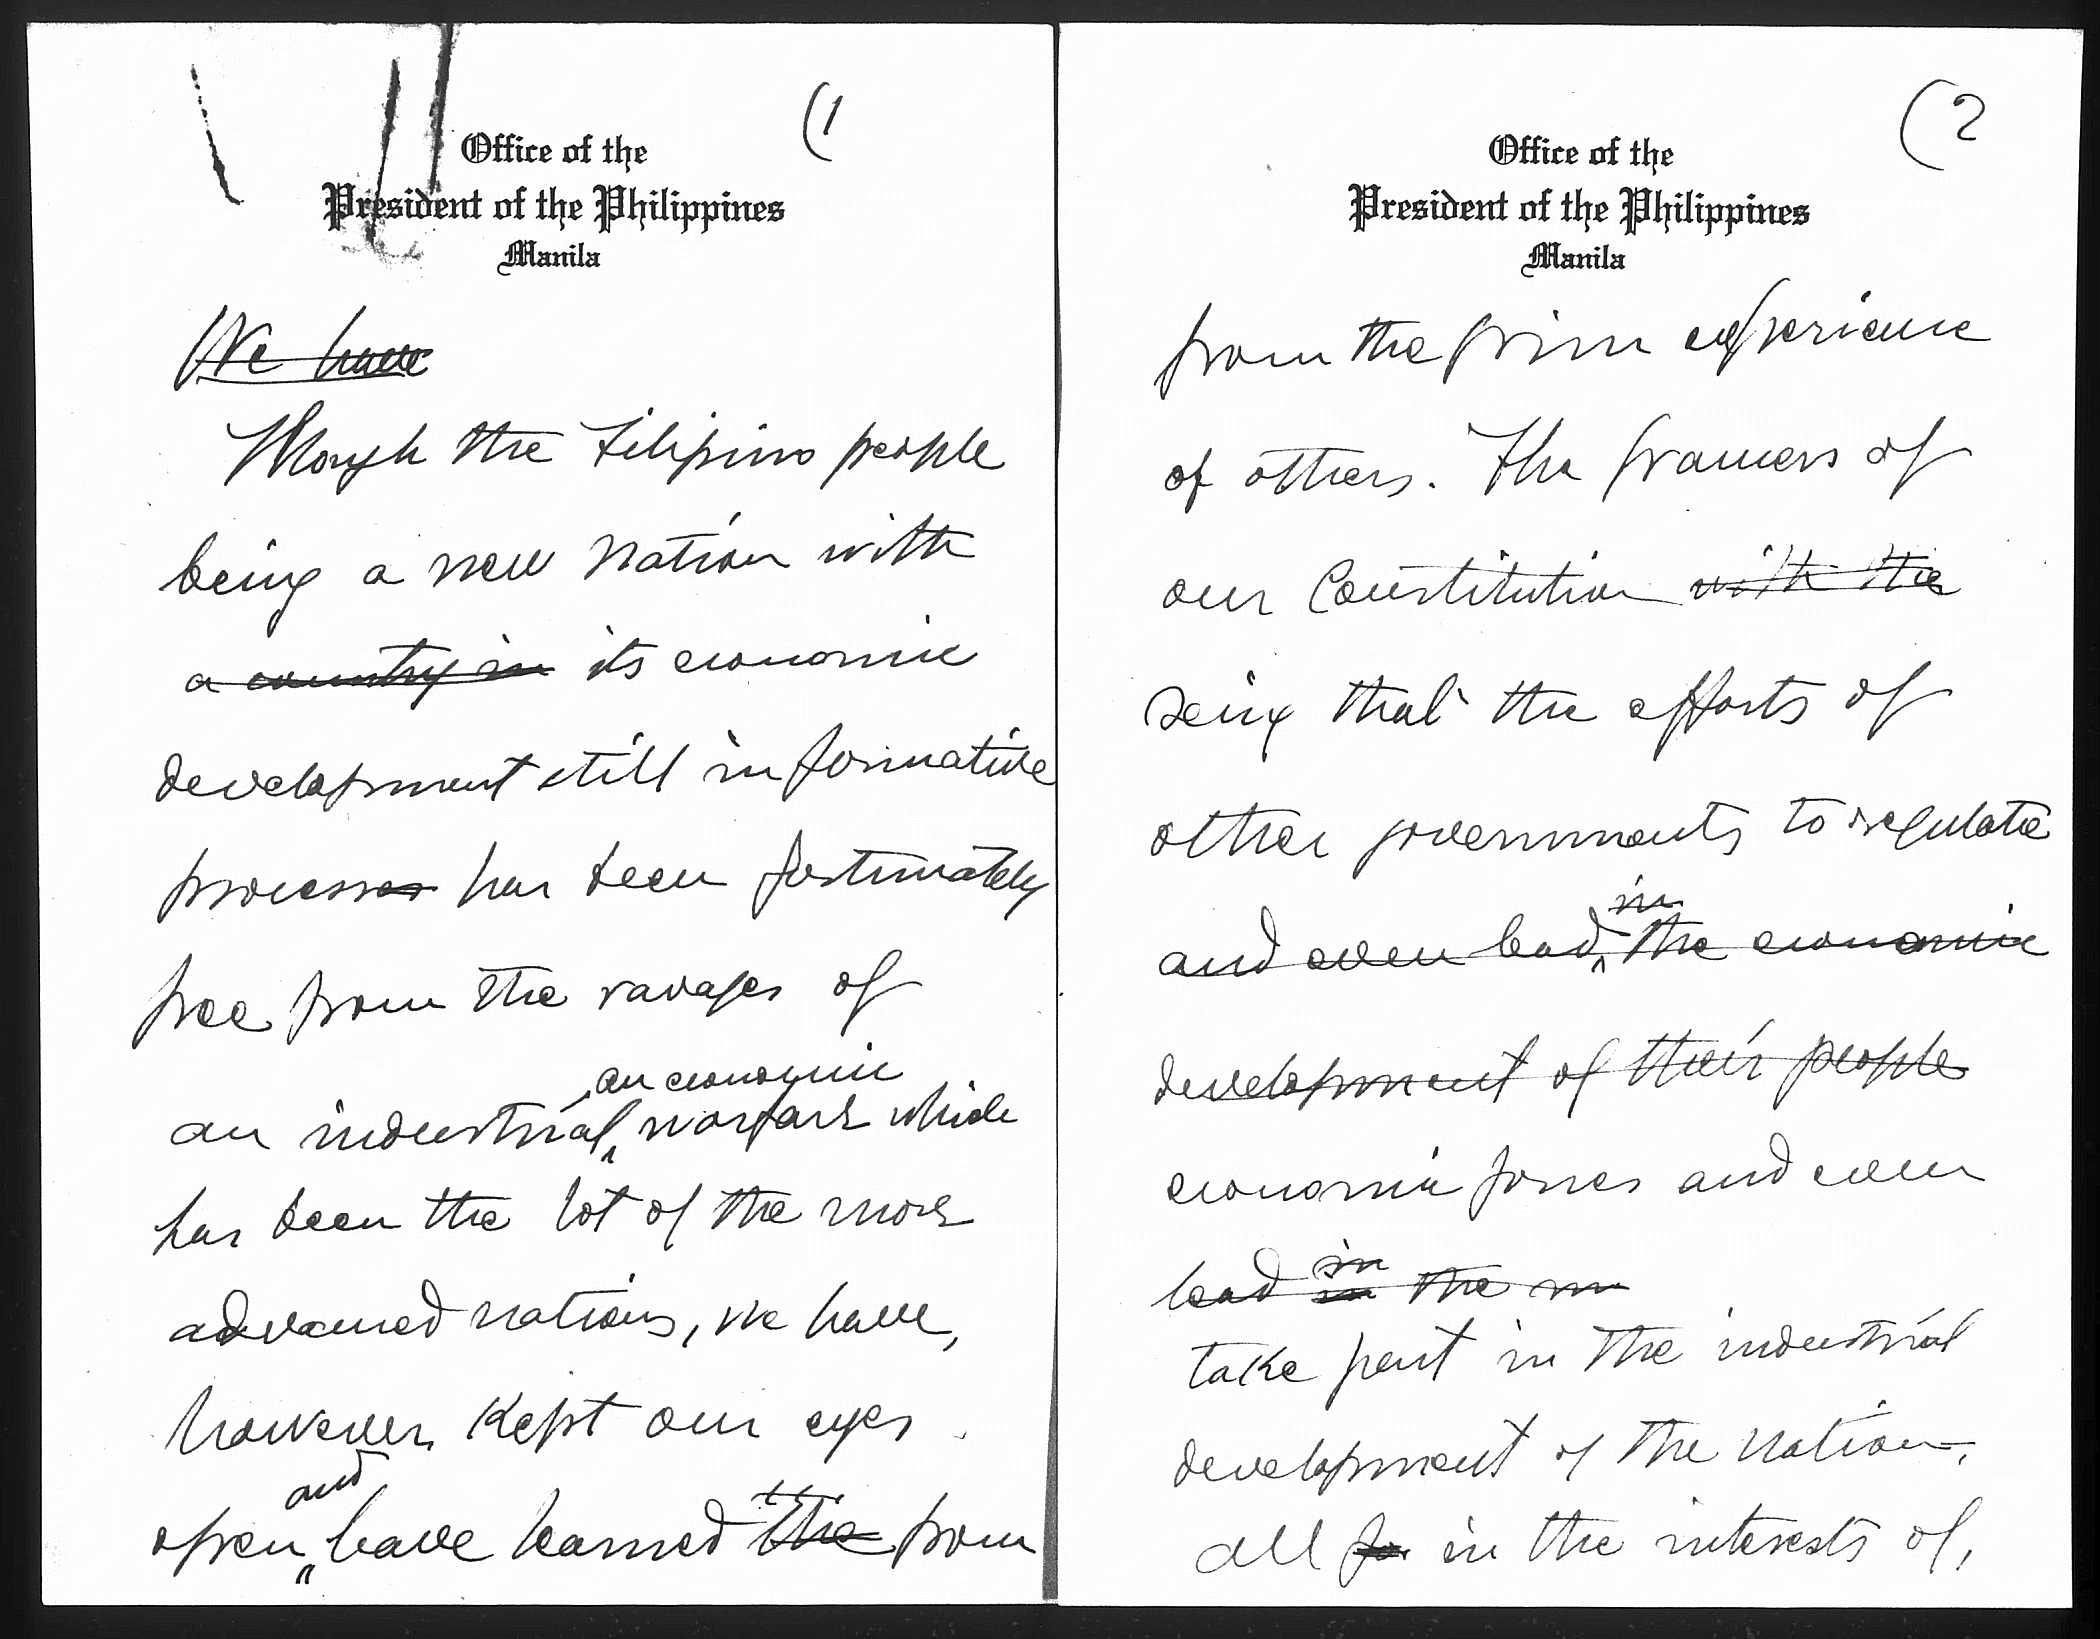 (1
Office of the
President of the Philippines
Manila
We have
Though the Filipino people
being a new nation with
a country in its economic
development still in formative
processes has been fortunately
free from the ravages of
an economic
an industrial warfare which
has been the lot of the more
advanced nations, we have,
however, kept our eyes
and
open have learned the from
(2
Office of the
President of the Philippines
Manila
from the grim experience
of others. The framers of
our Constitution with the
seing that the efforts of
other governments to regulate
in
and even lead the economic
development of their people
economic forces and even
in
lead in the
take part in the industrial
development of the nation,
all for in the interests of,